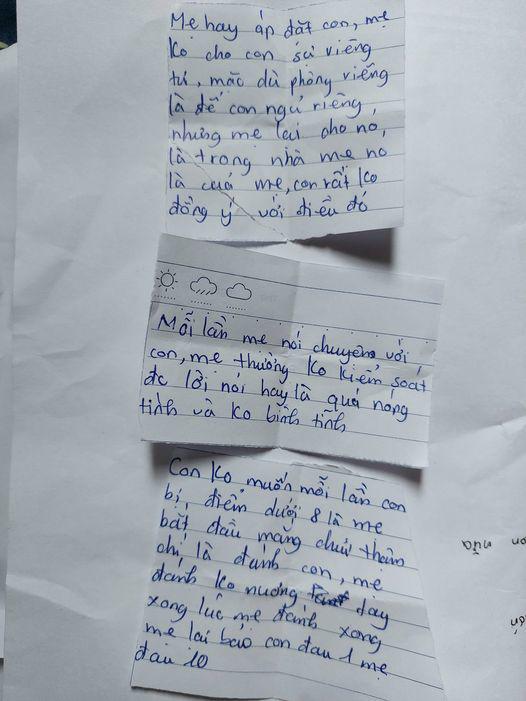 Mẹ hay áp đặt con, mẹ
ko cho con sự riêng
tư, mặc dù phòng riêng
là để con ngủ riêng,
nhưng mẹ lại cho nó,
là trong nhà mẹ nó
là của mẹ, con rất ko
đồng ý với điều đó
Mỗi lần mẹ nói chuyện với
con, mẹ thường ko kiểm soát
đc lời nói hay là quá nóng
tính và ko bình tĩnh
Con ko muốn mỗi lần con
bị điểm dưới 8 là mẹ
bắt đầu mắng chửi thậm
chí là đánh con, mẹ
đánh ko nương tay
xong lúc mẹ đánh xong
mẹ lại bảo con đau 1 mẹ
đau 10
nữa